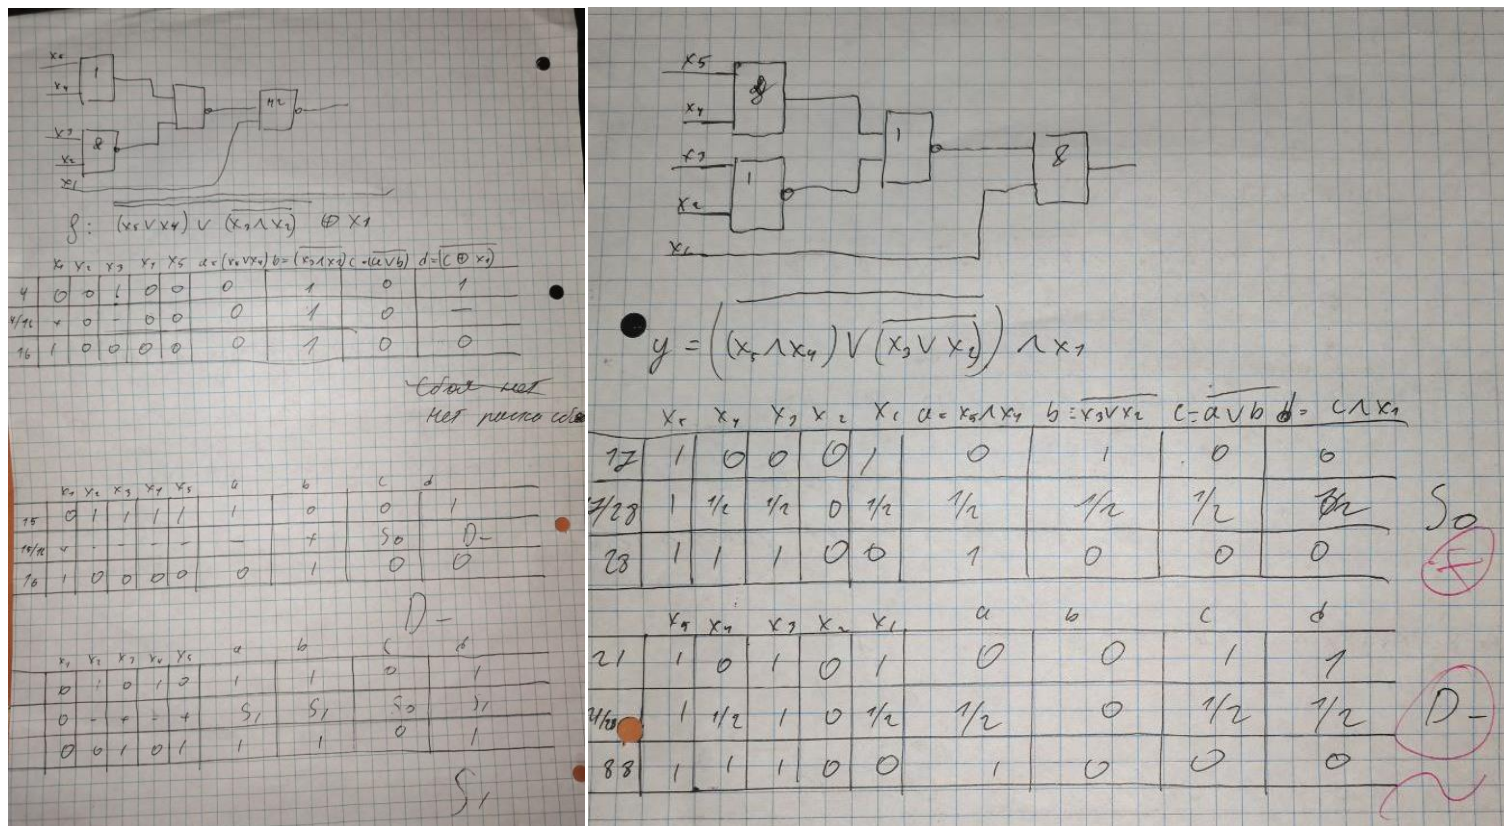 x5
1
x4
x3
&
x2
x1
f: (x5 ∨ x4) ∨ (x3 ∧ x2) ⊕ x1
x1 x2 x3 x4 x5 a = (x5 ∨ x4) b = (x3 ∧ x2) c = (a ∨ b) d = (c ⊕ x1)
4 0 0 1 0 0 0 1 0 1
4/16 + 0 - 0 0 0 1 0 —
16 1 0 0 0 0 0 1 0 0
Сбоя нет
Нет риска сбоя
x1 x2 x3 x4 x5 a b c d
15 0 1 1 1 1 1 0 0 1
15/16 + - - - - - + S0 D-
16 1 0 0 0 0 0 1 0 0
D-
x1 x2 x3 x4 x5 a b c d
0 1 0 1 0 1 1 0 1
0 - + - + S1 S1 S0 S1
0 0 1 0 1 1 1 0 1
S1
x5
&
x4
1
8
x3
1
x2
x1
y = ((x5 ∧ x4) ∨ (x3 ∨ x2)) ∧ x1
x5 x4 x3 x2 x1 a = x5 ∧ x4 b = x3 ∨ x2 c = a ∨ b d = c ∧ x1
17 1 0 0 0 1 0 1 0 0
7/28 1 1/2 1/2 0 1/2 1/2 1/2 1/2 1/2 S0
28 1 1 1 0 0 1 0 0 0
x5 x4 x3 x2 x1 a b c d
21 1 0 1 0 1 0 0 1 1
1 1/2 1 0 1/2 1/2 0 1/2 1/2 D-
88 1 1 1 0 0 1 0 0 0